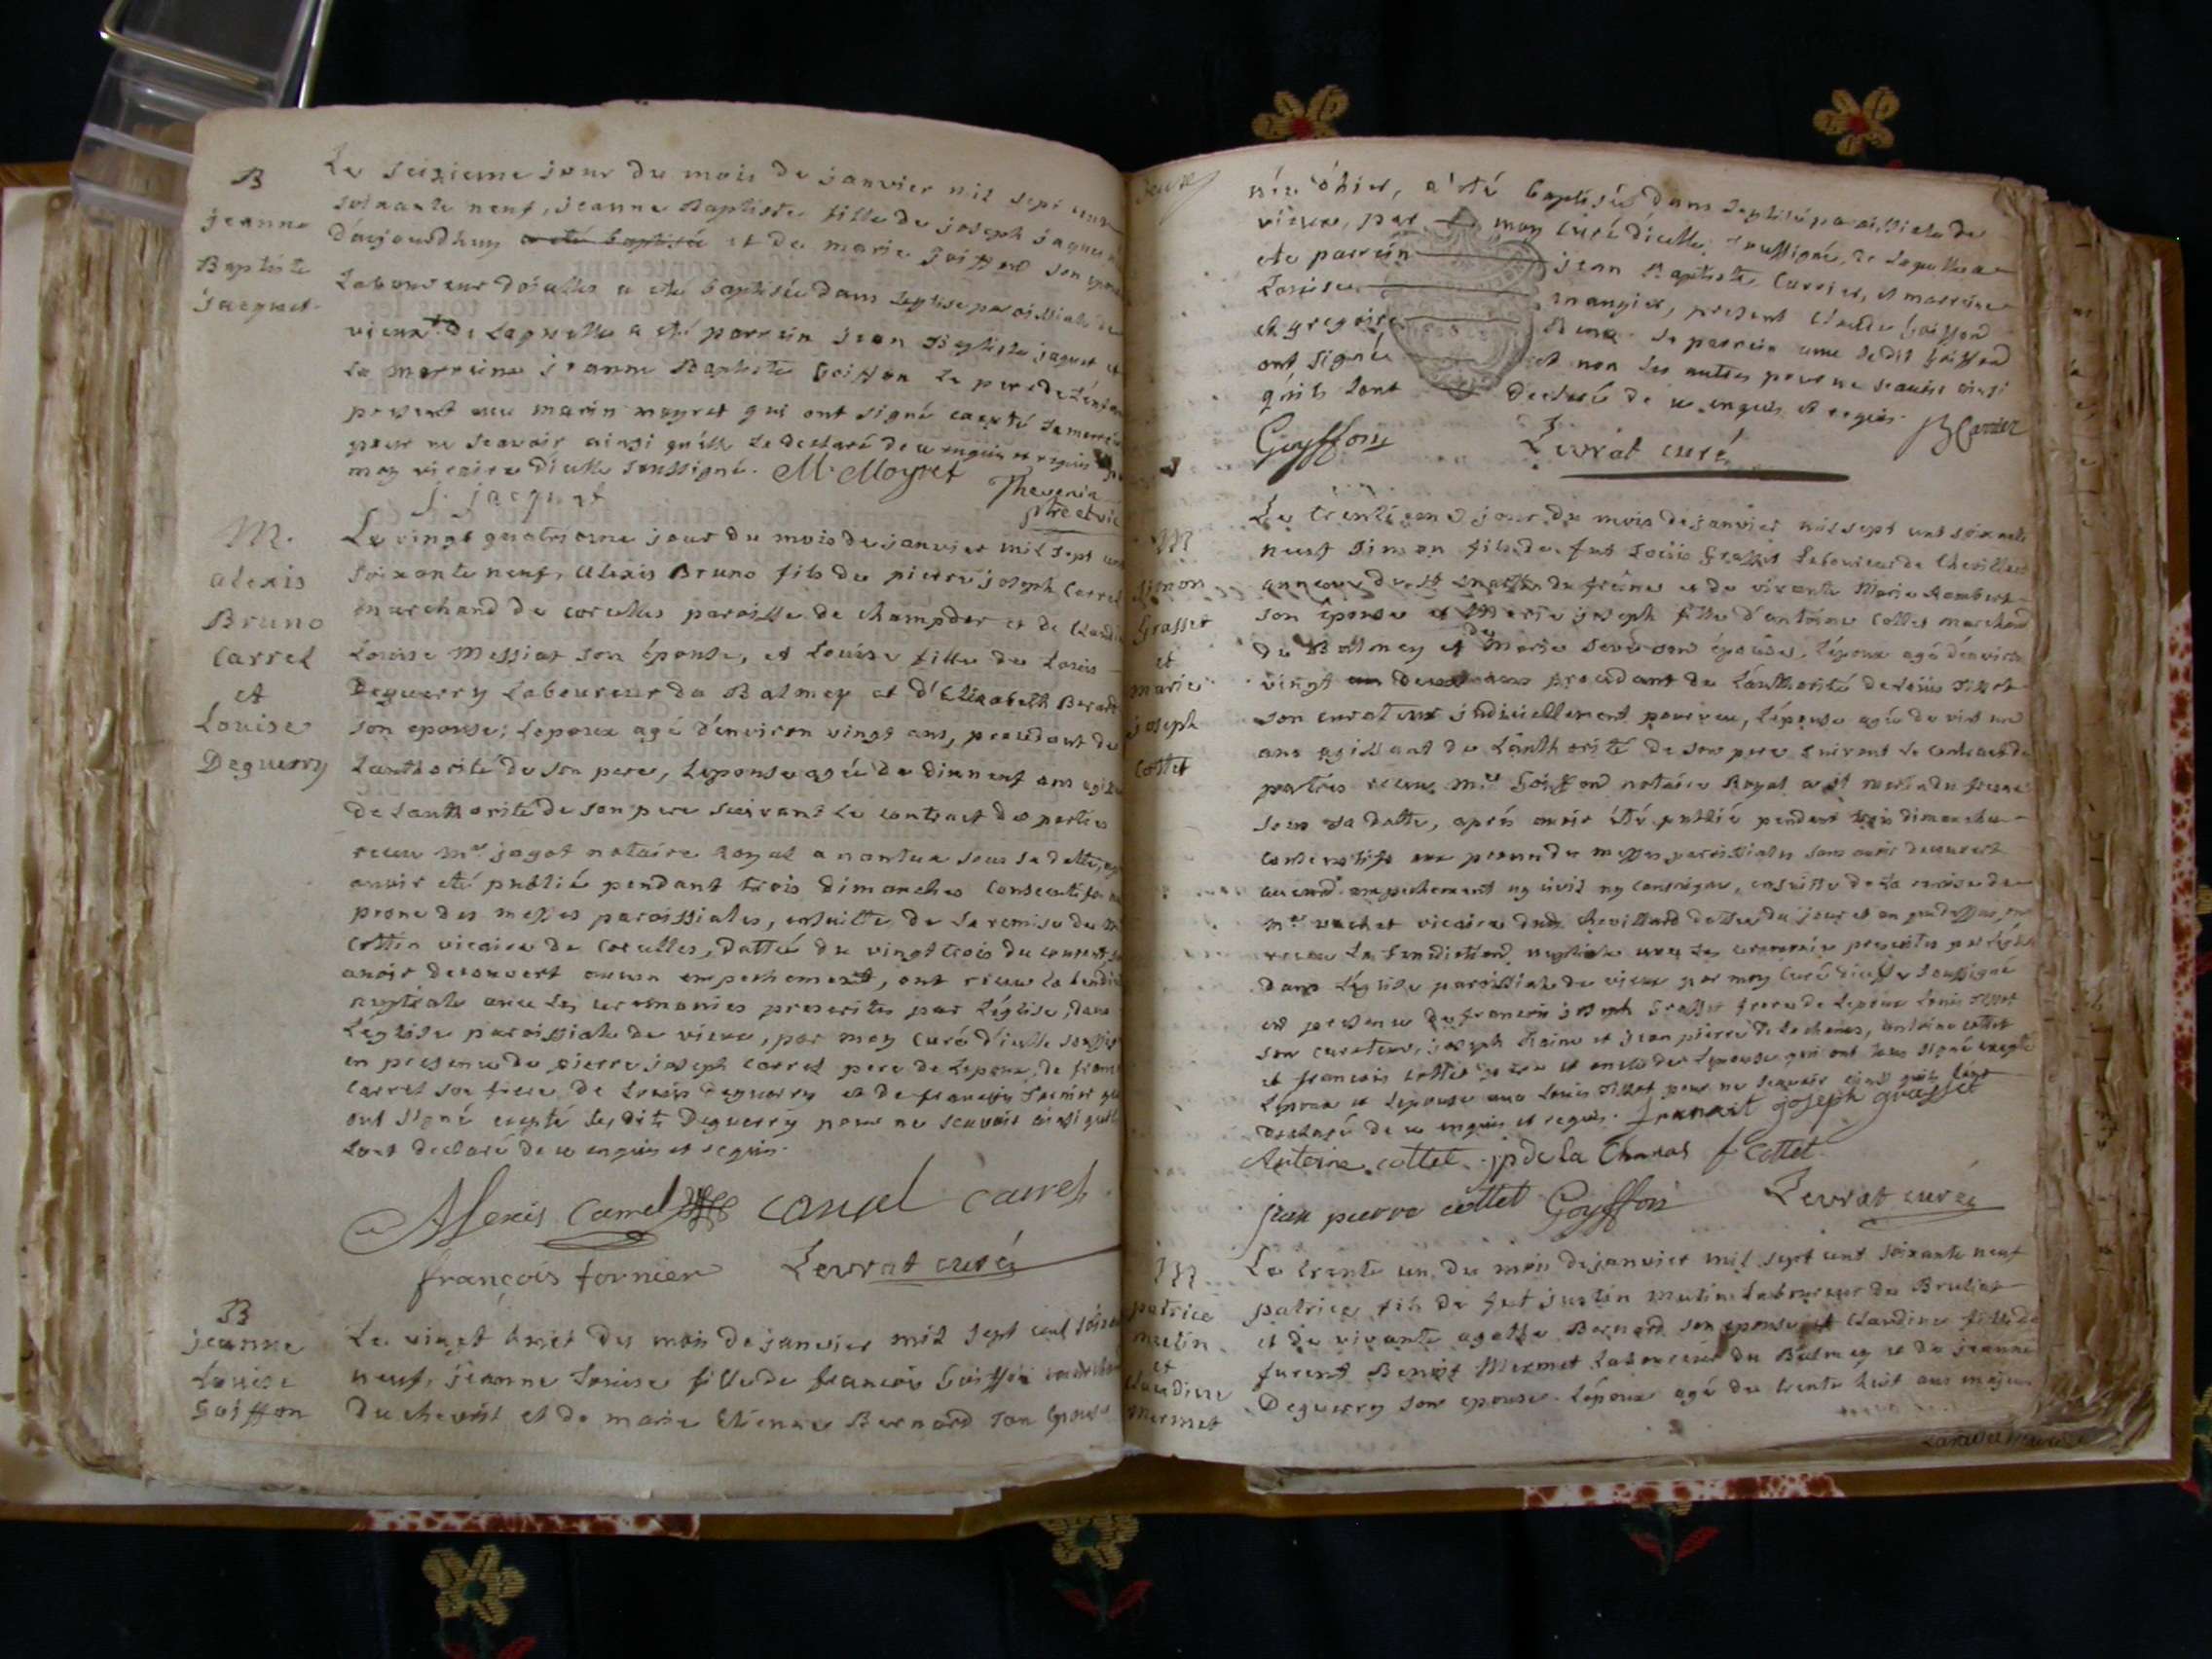 B
jeanne
Baptiste
jacquet.
Le seizieme jour du mois de janvier mil sept cent
soixante neuf, jeanne Baptiste fille de joseph jaquet
d'aujourdhuy a été baptisée et de marie Goiffon son epouse
Laboureur a eté baptisée dans Leglise paroissiale de
vieux de Laquelle a eté parrein jean Baptiste jaquet et
La marreine jeanne Baptiste Goiffon Le pere de L'enfant
present avec marin moyret qui ont signé excepté La marreine
pour ne scavoir ainsi qu'elle Le declaré de ce enquis et requis
moy vicaire d'icelle soussigné. M. Moyret
j. jacquet Thevenin
ptre et vic
M.
alexis
Bruno
Carrel
et
Louise
Deguerry
Le vingt quatrieme jour du mois de janvier mil sept cent
soixante neuf, alexis Bruno fils de pierre joseph Carrel
marchand de corcelles paroisse de champdor et de Claudine
Louise Messiat son épouse, et Louise fille de Louis
Deguerry Laboureur du Balmey et d'Elizabeth Berard
son epouse; Lepoux agé d'environ vingt ans, procedant de
Lauthorité de son pere, Lepouse agée de dix neuf ans agissant
de Lauthorité de son pere suivant Le contract des parties
receu me jagot notaire Royal a nantua sous sa datte,
avoir eté publié pendant trois dimanches consecutifs
prone des messes paroissiales, ensuitte de La remise de
Cottin vicaire de Corcelles, dattée du vingt trois du courant
avoir decouvert aucun empechement, ont receu La
nuptiale avec Les ceremonies prescrites par L'église, dans
L'eglise paroissiale de vieux, par moy curé d'icelle soussigné
en presence de pierre joseph carrel pere de Lepoux, de
Carrel son frere de Louis deguerry et de françois fornier qui
ont signé excepté Les dits Deguerry pour ne scavoir ainsi qu'ils
Lont declaré de ce enquis et requis.
Alexis Carrel carrel carrel
françois fornier Levrat curé
B
jeanne
Louise
Goiffon
Le vingt huit du mois de janvier mil sept cent soixante
neuf, jeanne Louise fille de françois Goiffon
du chevril et de marie Etienne Bernard son epouse
née d'hier, a eté baptisée dans Leglise paroissiale de
vieux, par moy curé d'icelle soussigné, de Laquelle a
ete parrein jean Baptiste Carrier, et marreine
Louise mangier, present Claude Goiffon
et gregoire Le parrein avec Ledit Goiffon
ont signé et non Les autres pour ne scavoir ainsi
qu'ils Lont declaré de ce enquis et requis. JB Carrier
Goyffon Levrat curé
M
simon
Grasset
et
marie
joseph
Cottet
Le trentieme jour du mois de janvier mil sept cent soixante
neuf simon fils de fut Louis Grasset Laboureur de Chevillard
annexe de st martin du frêne et de vivante Marie Rambert
son épouse et Marie joseph fille d'antoine Cottet marchand
du Balmey et de marie son épouse, L'époux agé d'environ
vingt deux ans procedant de Lauthorité de Louis
son curateur judiciellement pourveu, L'épouse agée de vint un
ans agissant de Lauthorité de son pere suivant Le contract de
parties receu me Goiffon notaire Royal a st martin du frene
sous sa datte, aprés avoir été publié pendant trois dimanches
consecutifs aux prones des messes paroissiales sans avoir decouvert
aucun empechement ny civil ny canonique, ensuitte de La remise de
me vicaire dudit Chevillard dattée du jour
receu La benediction nuptiale avec Les ceremonies prescrites par L'église
dans L'église paroissiale de vieux par moy Curé d'icelle soussigné
en presence de francois joseph Grasset frere de Lepoux Louis
son curateur, joseph et jean pierre de La charas, antoine cottet
et francois cottet pere et oncle de Lepouse qui ont tous signé excepté
L'époux et Lépouse avec Louis pour ne scavoir ainsi qu'ils Lont
declaré de ce enquis et requis. francois joseph grasset
Antoine cottet. jp de la Charas f Cottet
jean pierre cottet Goyffon Levrat curé
M
patrice
mutin
et
Claudine
mermet
Le trente un du mois de janvier mil sept cent soixante neuf
patrice fils de fut justin mutin Laboureur du Bruliat
et de vivante agathe Bernard son epouse et Claudine fille de
furent Benoit Mermet Laboureur du Balmey et de jeanne
Deguerry son epouse. Lépoux agé de trente huit ans majeur